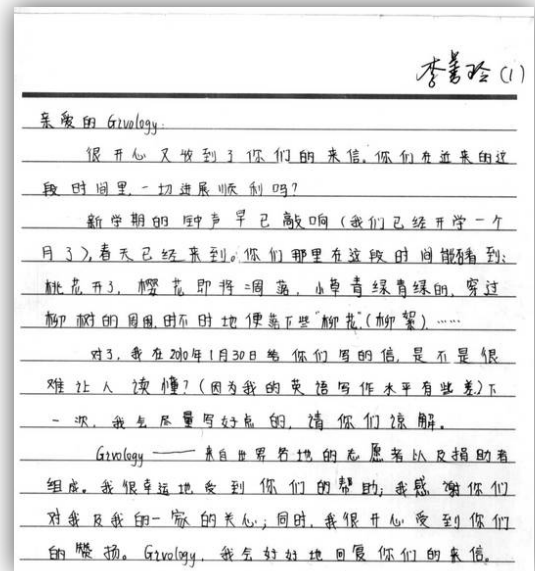 李善玲 (1)
亲爱的 Givology:
很开心又收到了你们的来信。你们在近来的这
段时间里,一切进展顺利吗?
新学期的钟声早已敲响(我们已经开学一个
月了),春天已经来到。你们那里在这段时间能看到:
桃花开了,樱花即将凋落,小草青绿青绿的,穿过
柳树的周围,时不时地便落下些“柳花”(柳絮)……
对了,我在2010年1月30日给你们写的信,是不是很
难让人读懂?(因为我的英语写作水平有些差)下
一次,我会尽量写好点的,请你们谅解。
Givology —— 来自世界各地的志愿者以及捐助者
组成。我很幸运地受到你们的帮助;我感谢你们
对我及我的一家的关心;同时,我很开心受到你们
的赞扬。Givology,我会好好地回复你们的来信。